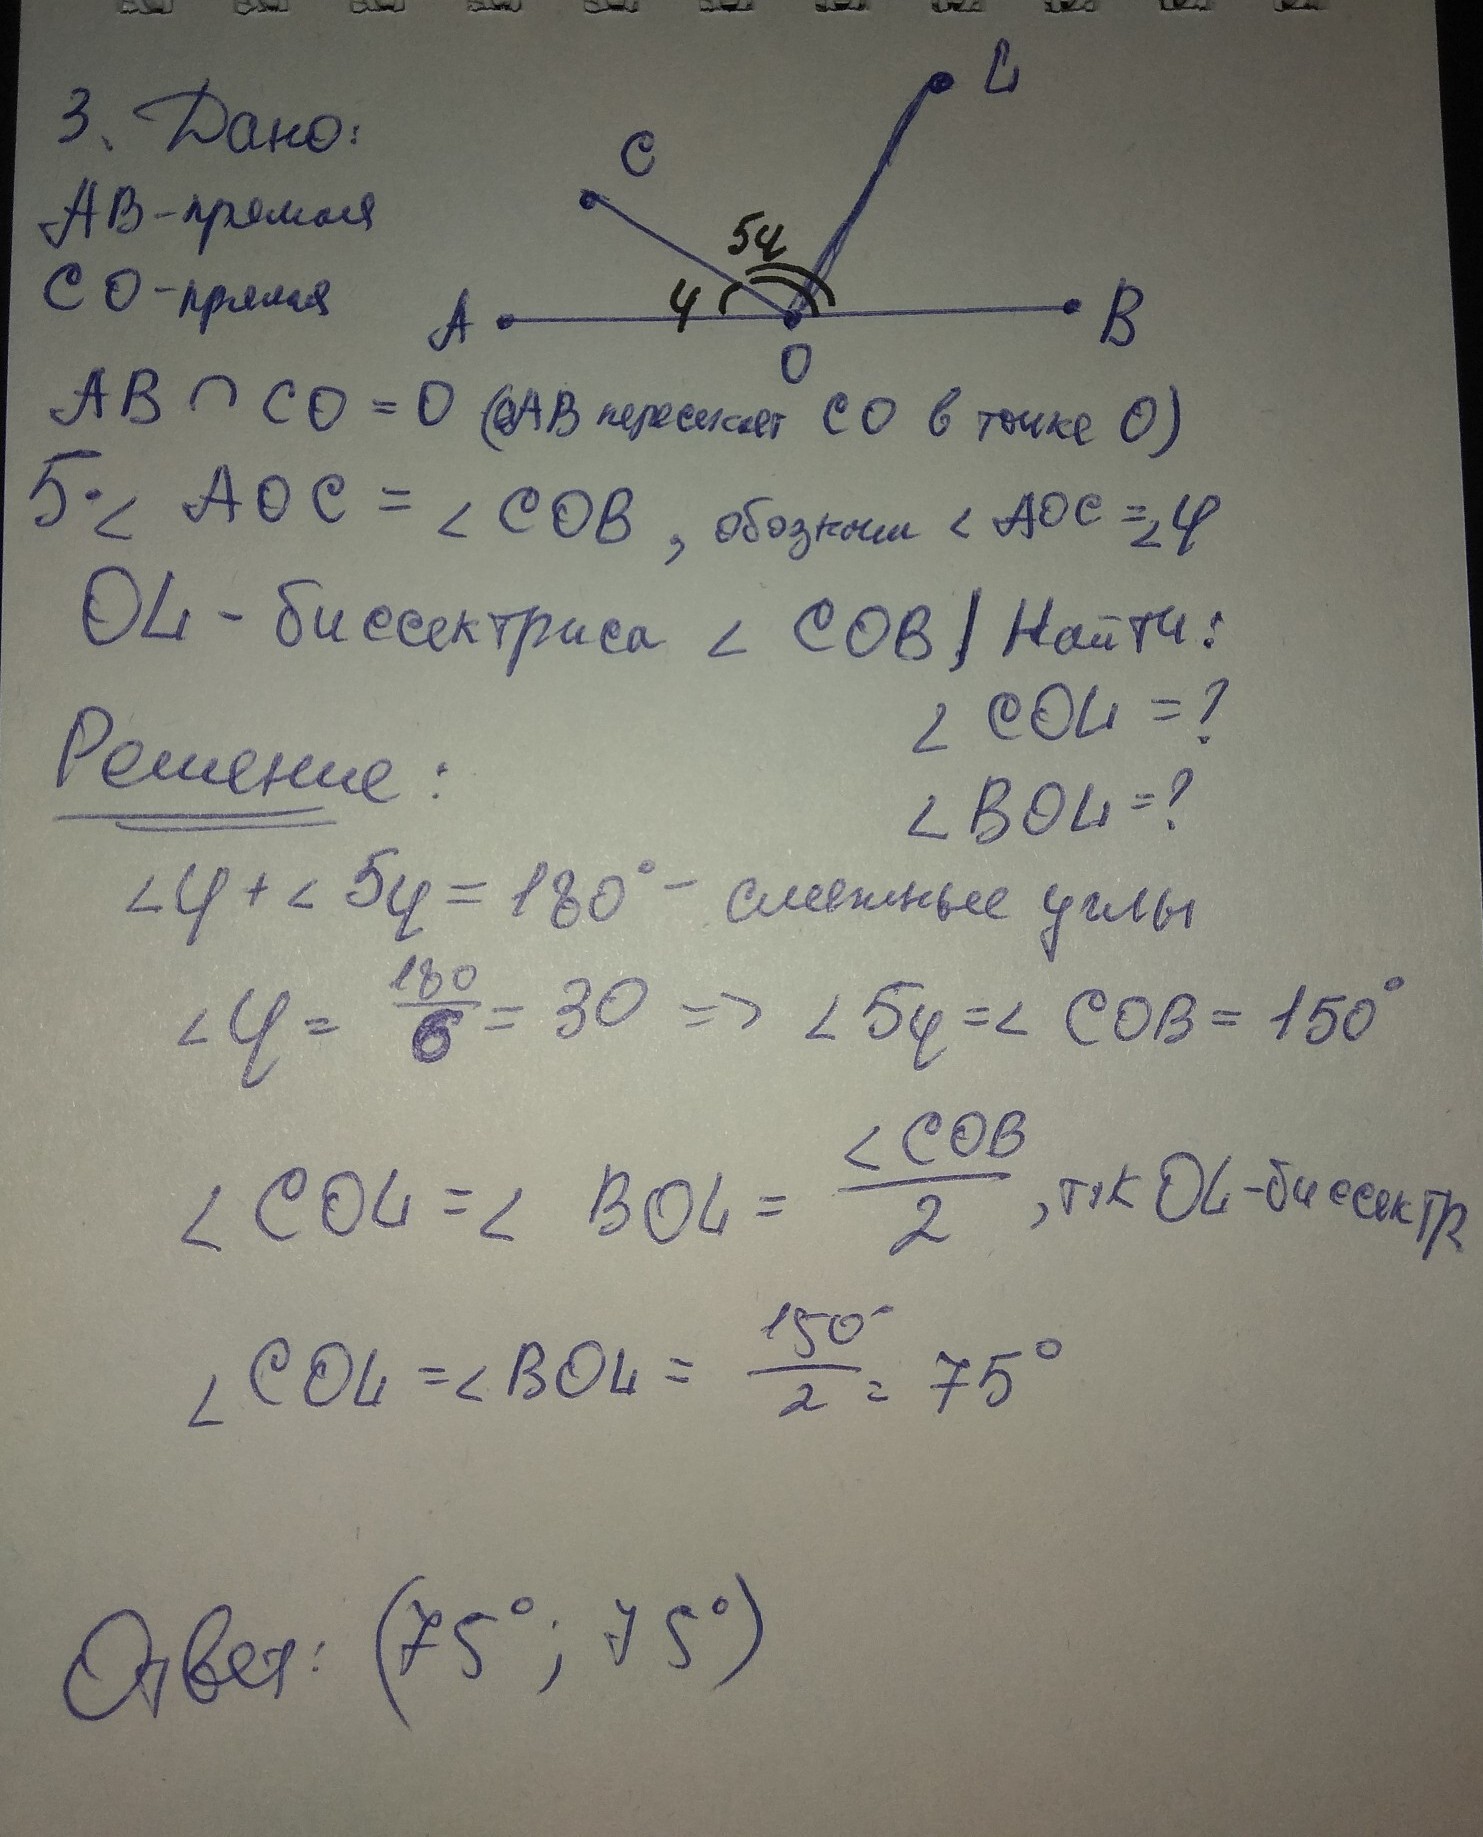 3. Дано:
АВ-прямая
СО-прямая
C
L
54
4
A
O
B
АВ ∩ СО = О (АВ пересекает СО в точке О)
5·∠ АОС = ∠ СОВ, обозначим ∠ АОС = ∠φ
OL - биссектриса ∠ COB | Найти:
∠ COL = ?
∠ BOL = ?
Решение:
∠φ + ∠ 5φ = 180° - смежные углы
∠φ = 180/6 = 30 => ∠5φ = ∠ COB = 150°
∠ COL = ∠ BOL = ∠ COB/2, т.к OL-биссектр
∠ COL = ∠ BOL = 150°/2 = 75°
Ответ: (75°; 75°)